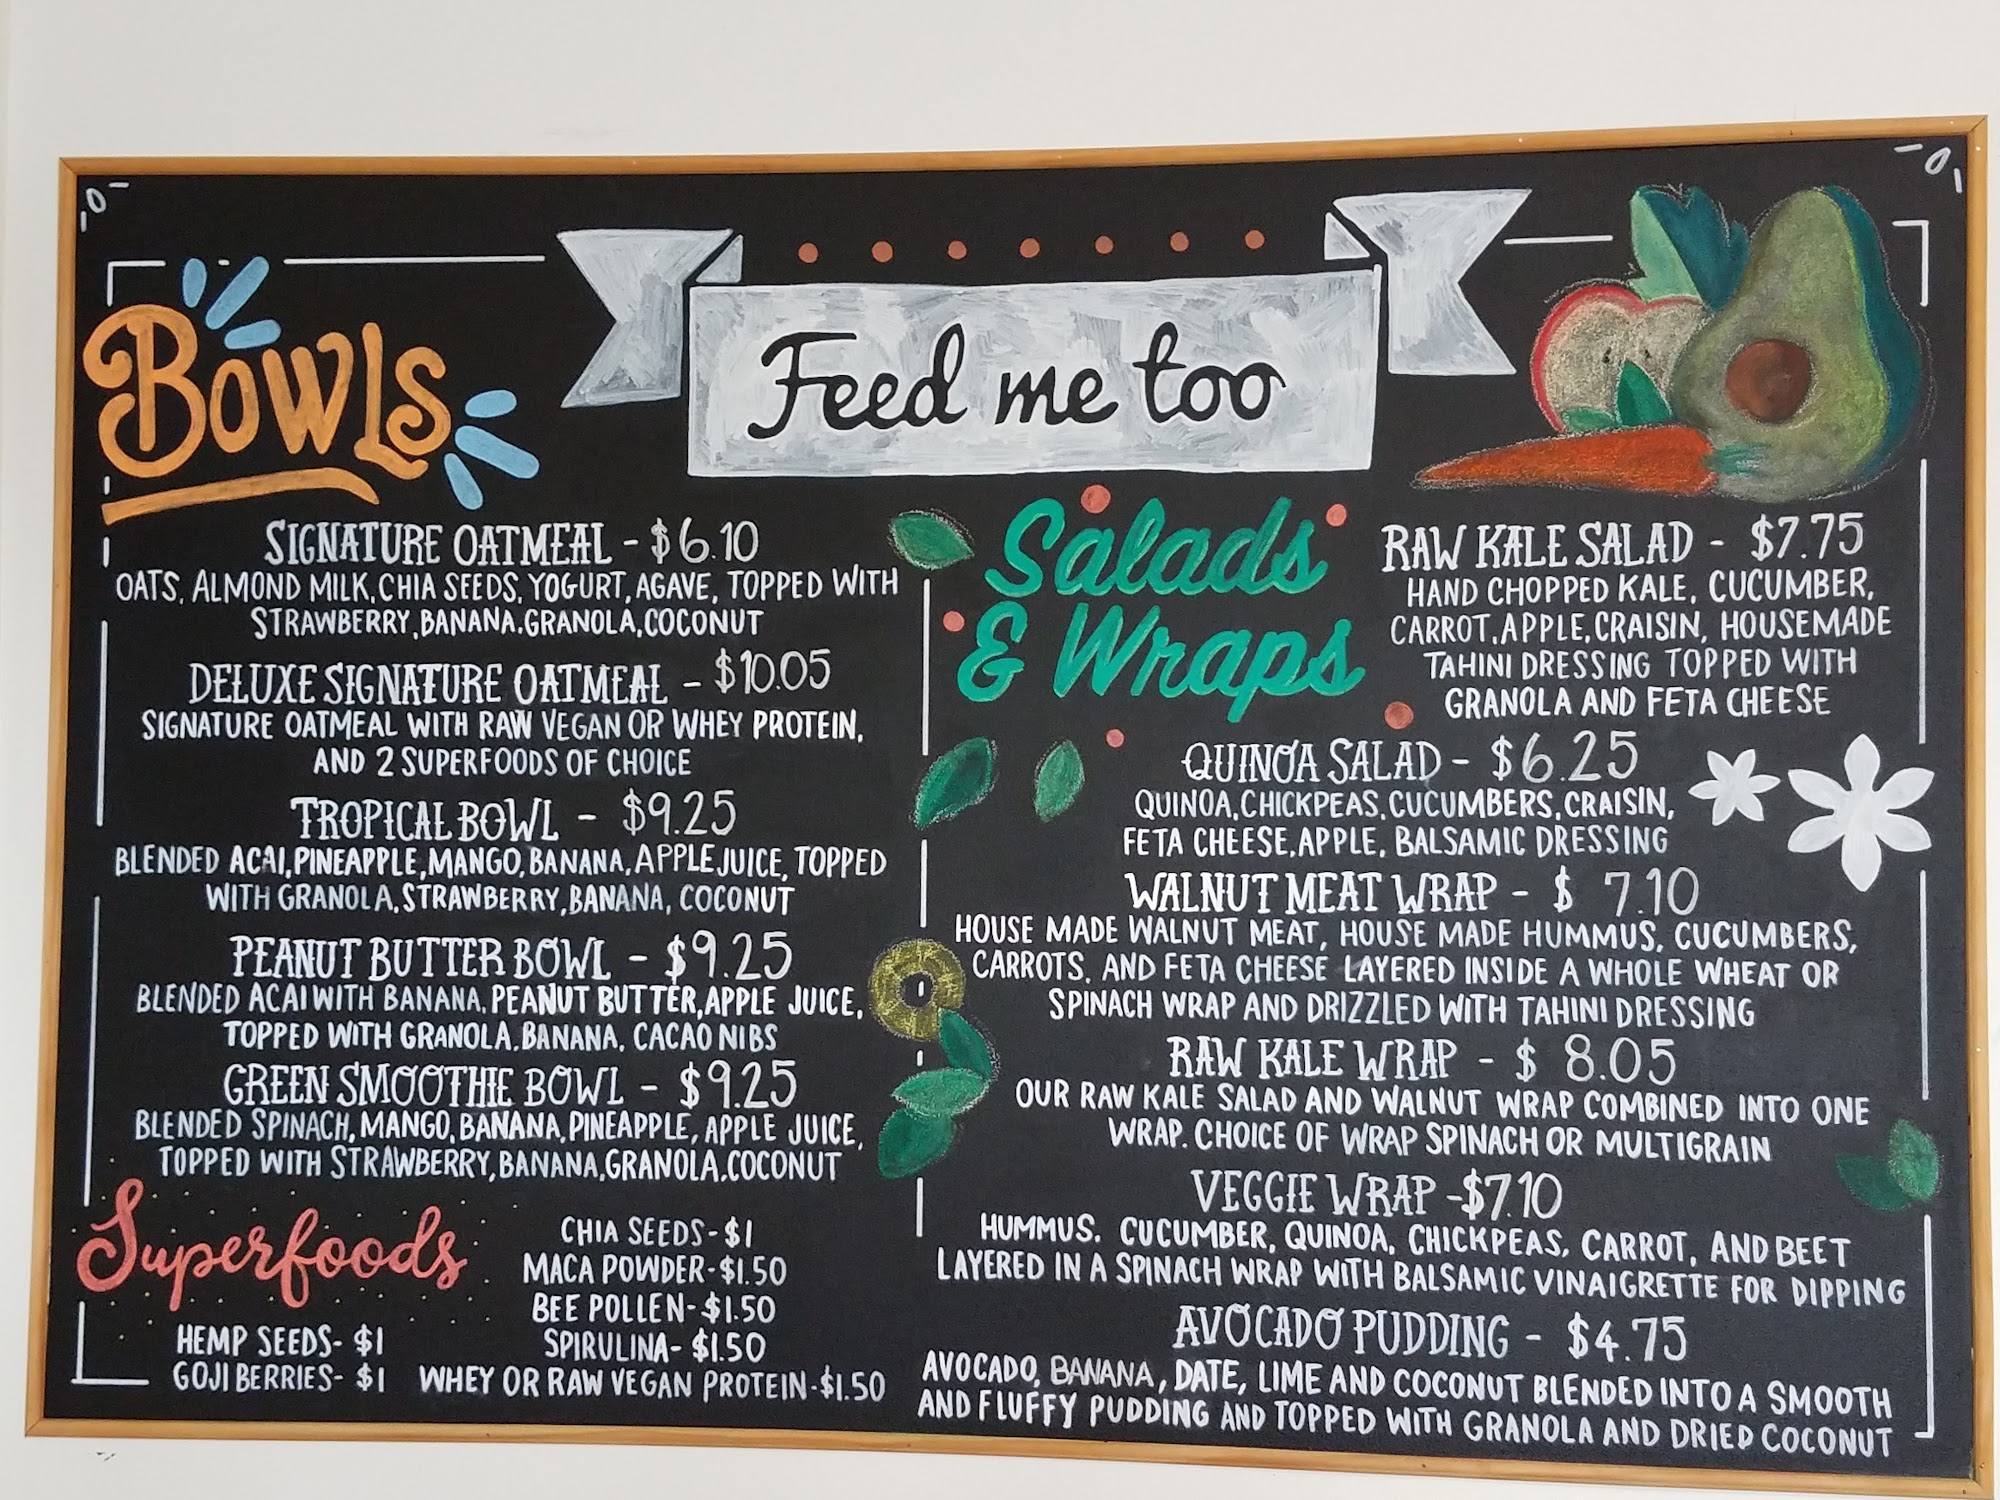 Feed me too
BOWLS
SIGNATURE OATMEAL - $6.10
OATS, ALMOND MILK, CHIA SEEDS, YOGURT, AGAVE, TOPPED WITH
STRAWBERRY, BANANA, GRANOLA, COCONUT
DELUXE SIGNATURE OATMEAL - $10.05
SIGNATURE OATMEAL WITH RAW VEGAN OR WHEY PROTEIN,
AND 2 SUPERFOODS OF CHOICE
TROPICAL BOWL - $9.25
BLENDED ACAI, PINEAPPLE, MANGO, BANANA, APPLE JUICE, TOPPED
WITH GRANOLA, STRAWBERRY, BANANA, COCONUT
PEANUT BUTTER BOWL - $9.25
BLENDED ACAI WITH BANANA, PEANUT BUTTER, APPLE JUICE,
TOPPED WITH GRANOLA, BANANA, CACAO NIBS
GREEN SMOOTHIE BOWL - $9.25
BLENDED SPINACH, MANGO, BANANA, PINEAPPLE, APPLE JUICE,
TOPPED WITH STRAWBERRY, BANANA, GRANOLA, COCONUT
Superfoods
HEMP SEEDS- $1
GOJI BERRIES- $1
CHIA SEEDS- $1
MACA POWDER- $1.50
BEE POLLEN- $1.50
SPIRULINA- $1.50
WHEY OR RAW VEGAN PROTEIN- $1.50
Salads
& Wraps
RAW KALE SALAD - $7.75
HAND CHOPPED KALE, CUCUMBER,
CARROT, APPLE, CRAISIN, HOUSEMADE
TAHINI DRESSING TOPPED WITH
GRANOLA AND FETA CHEESE
QUINOA SALAD - $6.25
QUINOA, CHICKPEAS, CUCUMBERS, CRAISIN,
FETA CHEESE, APPLE, BALSAMIC DRESSING
WALNUT MEAT WRAP - $ 7.10
HOUSE MADE WALNUT MEAT, HOUSE MADE HUMMUS, CUCUMBERS,
CARROTS, AND FETA CHEESE LAYERED INSIDE A WHOLE WHEAT OR
SPINACH WRAP AND DRIZZLED WITH TAHINI DRESSING
RAW KALE WRAP - $ 8.05
OUR RAW KALE SALAD AND WALNUT WRAP COMBINED INTO ONE
WRAP. CHOICE OF WRAP SPINACH OR MULTIGRAIN
VEGGIE WRAP - $7.10
HUMMUS, CUCUMBER, QUINOA, CHICKPEAS, CARROT, AND BEET
LAYERED IN A SPINACH WRAP WITH BALSAMIC VINAIGRETTE FOR DIPPING
AVOCADO PUDDING - $4.75
AVOCADO, BANANA, DATE, LIME AND COCONUT BLENDED INTO A SMOOTH
AND FLUFFY PUDDING AND TOPPED WITH GRANOLA AND DRIED COCONUT